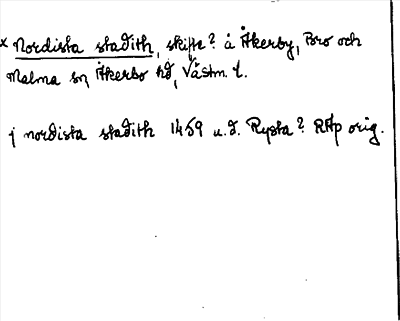 x Nordista stadith, skifte? å Åkerby, Bro och
Malma sn, Åkerbo hd, Västm. l.
j nordista stadith 1459 u.d. Rysta? RAp orig.